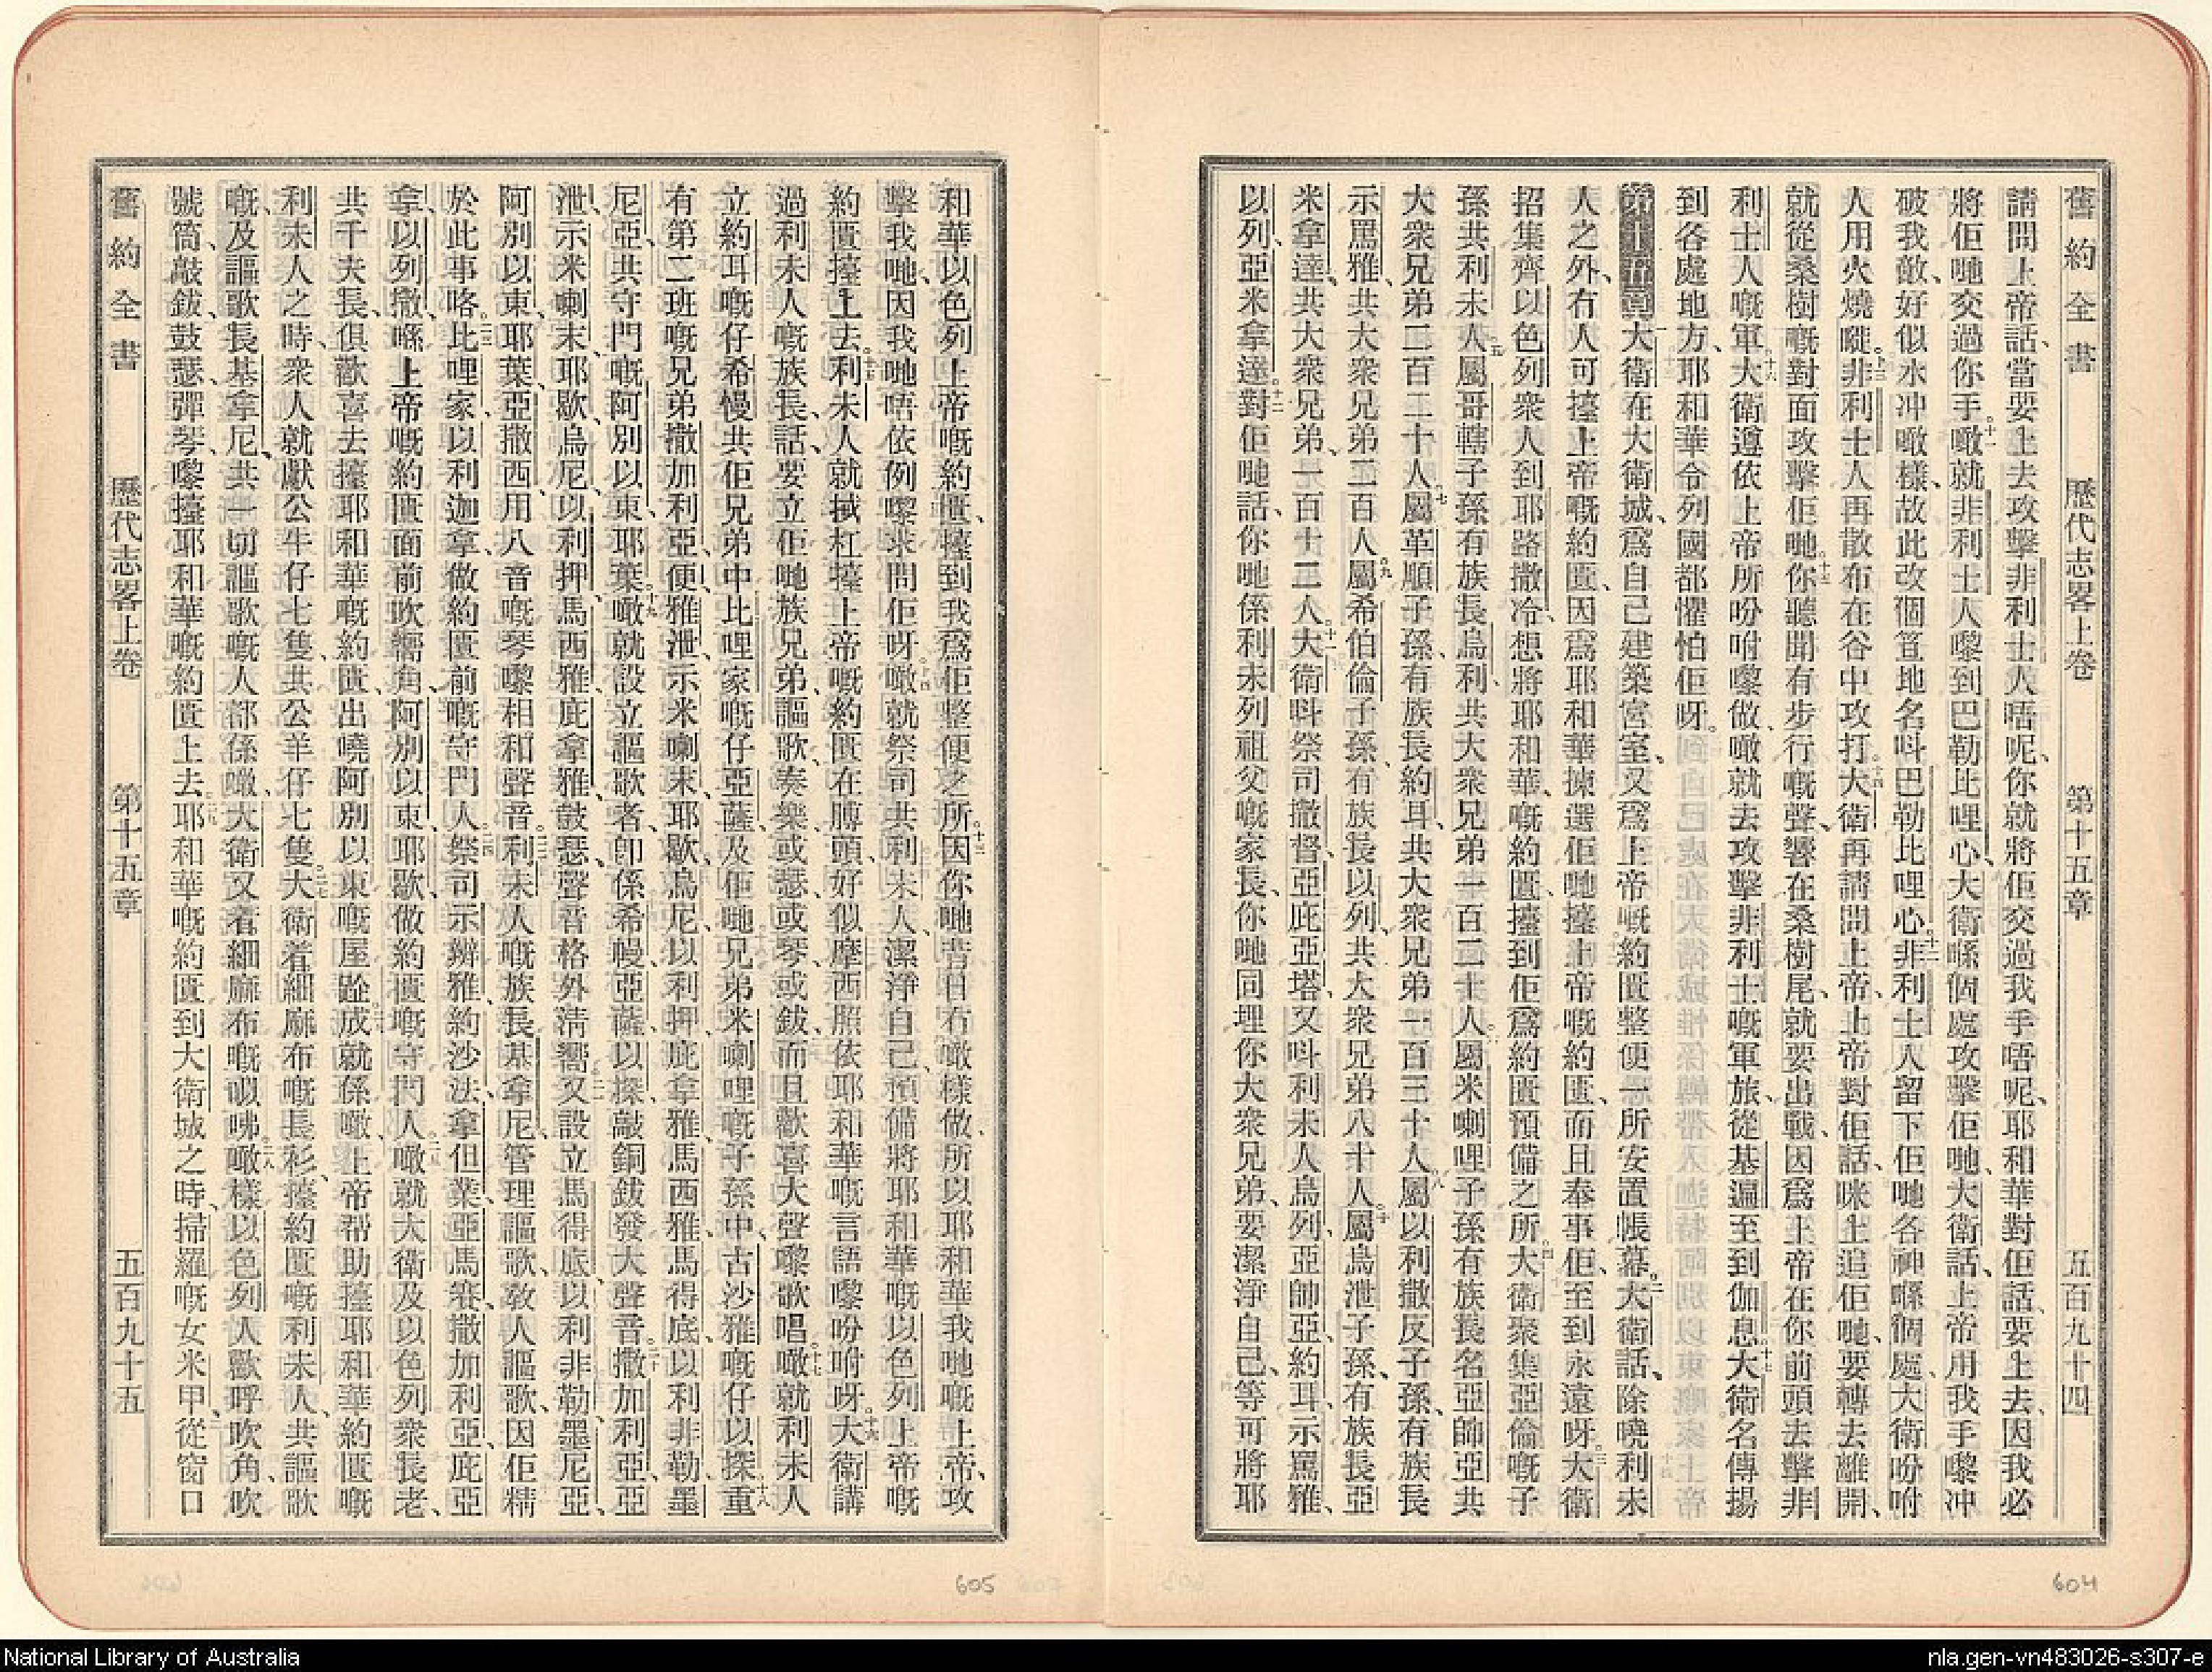 舊約全書 歷代志畧上卷 第十五章 五百九十四
請問上帝話、當要上去攻擊非利士人唔呢、你就將佢交過我手唔呢、耶和華對佢話、要上去、因我必
將佢哋交過你手。十一噉就非利士人嚟到巴勒比哩心、大衛喺個處攻擊佢哋、大衛話、上帝用我手嚟冲
破我敵、好似水冲噉樣、故此改個笪地名呌巴勒比哩心。十二非利士人留下佢哋各神喺個處、大衛吩咐
人用火燒嘥。十三非利士人再散布在谷中攻打。十四大衛再請問上帝、上帝對佢話、咪上追佢哋、要轉去離開、
就從桑樹嘅對面攻擊佢哋。十五你聽聞有步行嘅聲、響在桑樹尾、就要出戰、因爲上帝在你前頭去擊非
利士人嘅軍。十六大衛遵依上帝所吩咐嚟做、噉就去攻擊非利士嘅軍旅、從基遍至到伽息。十七大衛名傳揚
到各處地方、耶和華令列國都懼怕佢呀。
第十五章 一大衛在大衛城、爲自己建築宮室、又爲上帝嘅約匱整便一所安置帳幕。二大衛話、除曉利未
人之外、冇人可擡上帝嘅約匱、因爲耶和華揀選佢哋擡上帝嘅約匱、而且奉事佢、至到永遠呀。三大衛
招集齊以色列衆人到耶路撒冷、想將耶和華嘅約匱擡到佢爲約匱預備之所。四大衛聚集亞倫嘅子
孫共利未人。五屬哥轄子孫有族長烏利、共大衆兄弟一百二十人。六屬米喇哩子孫有族長名亞師亞、共
大衆兄弟二百二十人。七屬革順子孫、有族長約耳、共大衆兄弟一百三十人。八屬以利撒反子孫、有族長
示罵雅、共大衆兄弟二百人。九屬希伯倫子孫、有族長以列、共大衆兄弟八十人。十屬烏泄子孫、有族長亞
米拿達、共大衆兄弟一百十二人。十一大衛呌祭司撒督、亞庇亞塔、又呌利未人烏列、亞帥亞、約耳、示罵雅、
以列、亞米拿達。十二對佢哋話、你哋係利未列祖父嘅家長、你哋同埋你大衆兄弟、要潔淨自己、等可將耶
604
和華以色列上帝嘅約匱、擡到我爲佢整便之所。十三因你哋昔日冇噉樣做、所以耶和華我哋嘅上帝、攻
擊我哋、因我哋唔依例嚟求問佢呀。十四噉就祭司共利未人潔淨自己、預備將耶和華嘅以色列上帝嘅
約匱擡上去。十五利未人就拭杠擡上帝嘅約匱在膊頭、好似摩西照依耶和華嘅言語嚟吩咐呀。十六大衛講
過利未人嘅族長、話、要立佢哋族兄弟謳歌、奏樂、或瑟、或琴、或鈸、而且歡喜大聲嚟歌唱。十七噉就利未人
立約耳嘅仔希慢、共佢兄弟中比哩家嘅仔亞薩、及佢哋兄弟米喇哩嘅子孫中、古沙雅嘅仔以探。十八重
有第二班嘅兄弟撒加利亞、便、雅泄、示米喇末、耶歇、烏尼、以利押、庇拿雅、馬西雅、馬得底、以利非勒、墨
尼亞、共守門嘅阿別以東、耶葉。十九噉就設立謳歌者、即係希幔、亞薩、以探、敲銅鈸發大聲音。二十撒加利亞、亞
泄、示米喇末、耶歇、烏尼、以利押、馬西雅、庇拿雅、鼓瑟、聲音格外淸嚮。二一又設立馬得底、以利非勒、墨尼亞、
阿別以東、耶葉、亞撒西、用八音嘅琴嚟相和聲音。二二利未人嘅族長基拿尼、管理謳歌、敎人謳歌、因佢精
於此事咯。二三比哩家、以利迦拿、做約匱前嘅守門人。二四祭司示辦雅、約沙法、拿但業、亞馬賽、撒加利亞、庇亞
拿、以列撒、喺上帝嘅約匱面前吹嚮角、阿別以東、耶歇、做約匱嘅守門人。二五噉就大衛及以色列衆長老、
共千夫長、俱歡喜去擡耶和華嘅約匱、出嘵阿別以東嘅屋。二六成就係噉、上帝帮助擡耶和華約匱嘅
利未人之時、衆人就獻公牛仔七隻、共公羊仔七隻。二七大衛着細麻布嘅長衫、擡約匱嘅利未人、共謳歌
嘅、及謳歌長基拿尼、共一切謳歌嘅人、都係噉、大衛又着細麻布嘅以咈。二八噉樣以色列人歡呼、吹角、吹
號筒、敲鈸、鼓瑟、彈琴、嚟擡耶和華嘅約匱上去。二九耶和華嘅約匱到大衛城之時、掃羅嘅女米甲、從窗口
舊約全書 歷代志畧上卷 第十五章 五百九十五
605
National Library of Australia
nla.gen-vn483026-s307-e